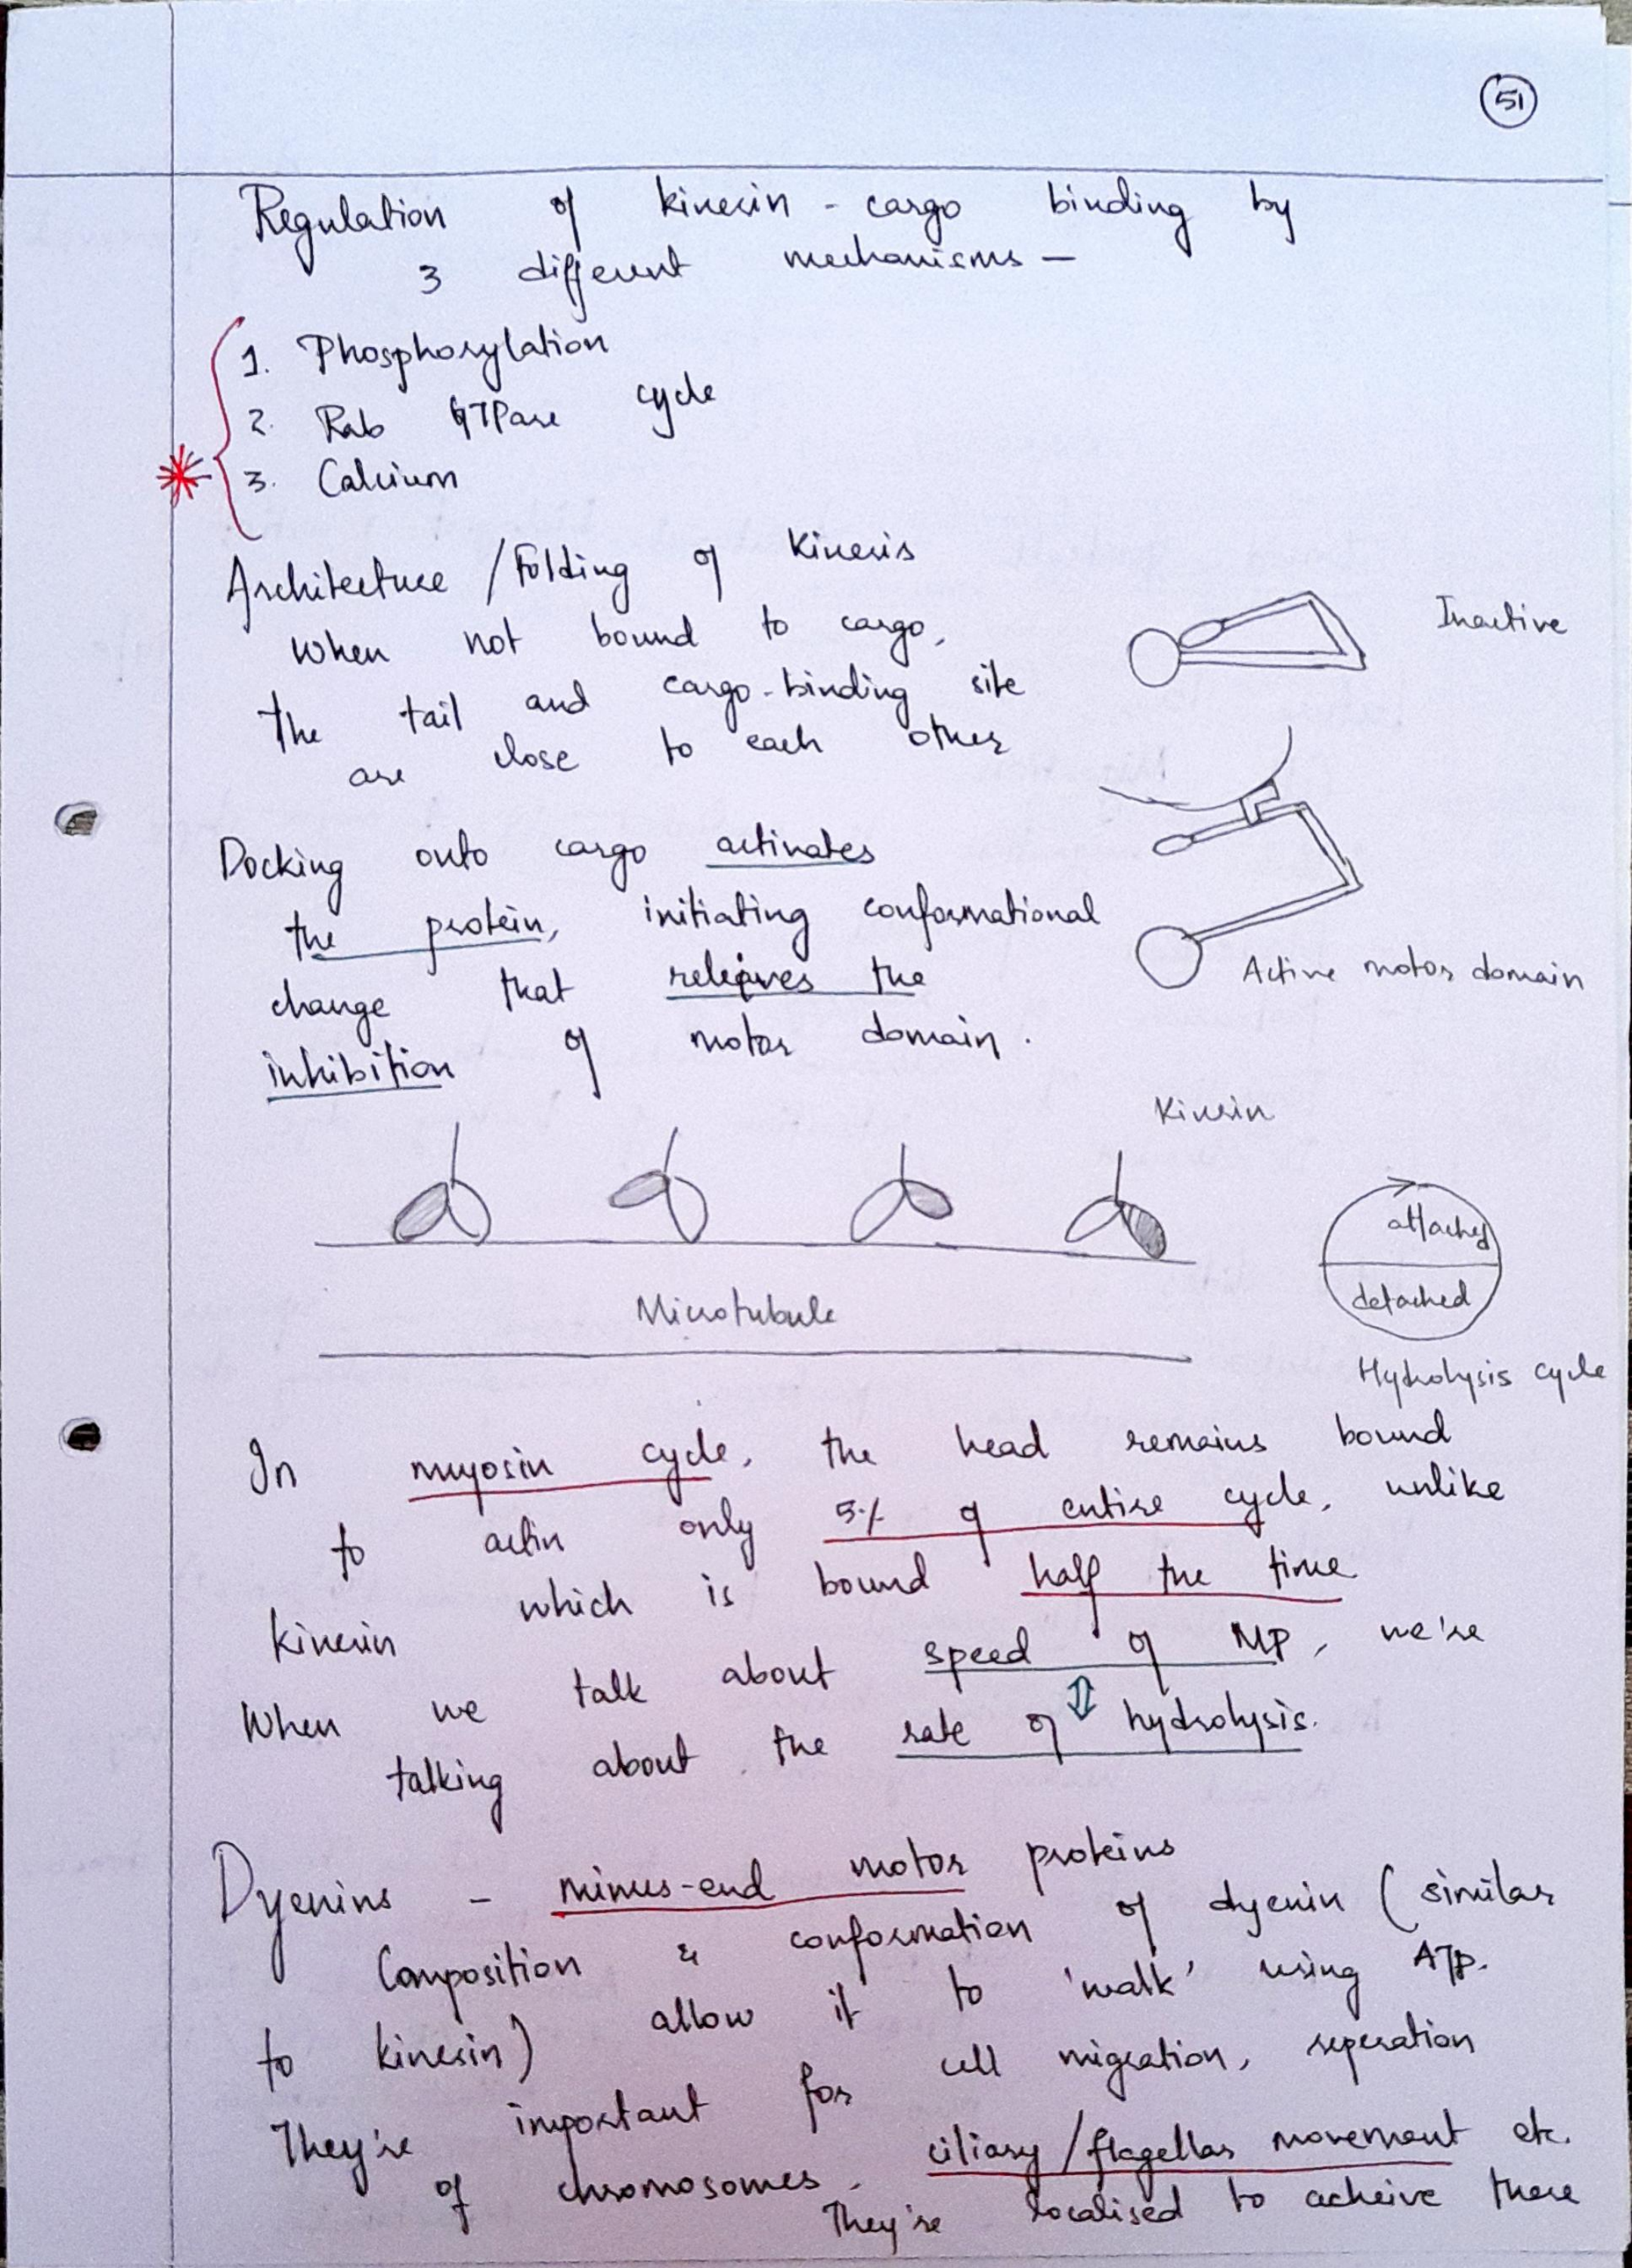 51
Regulation of kinesin - cargo binding by
3 different mechanisms —
1. Phosphorylation
2. Rab GTPase cycle
3. Calcium
Architecture / Folding of Kinesis
When not bound to cargo,
the tail and cargo-binding site
are close to each other
Inactive
Docking onto cargo activates
the protein, initiating conformational
change that relieves the
inhibition of motor domain.
Active motor domain
Kinesin
Microtubule
attached
detached
Hydrolysis cycle
In myosin cycle, the head remains bound
to actin only 5% of entire cycle, unlike
kinesin which is bound half the time
When we talk about speed of MP, we're
talking about the rate of hydrolysis.
Dyenins - minus-end motor proteins
Composition & conformation of dyenin (similar
to kinesin) allow it to 'walk' using ATP.
They're important for cell migration, seperation
of chromosomes, ciliary/flagellar movement etc.
They're localised to acheive these